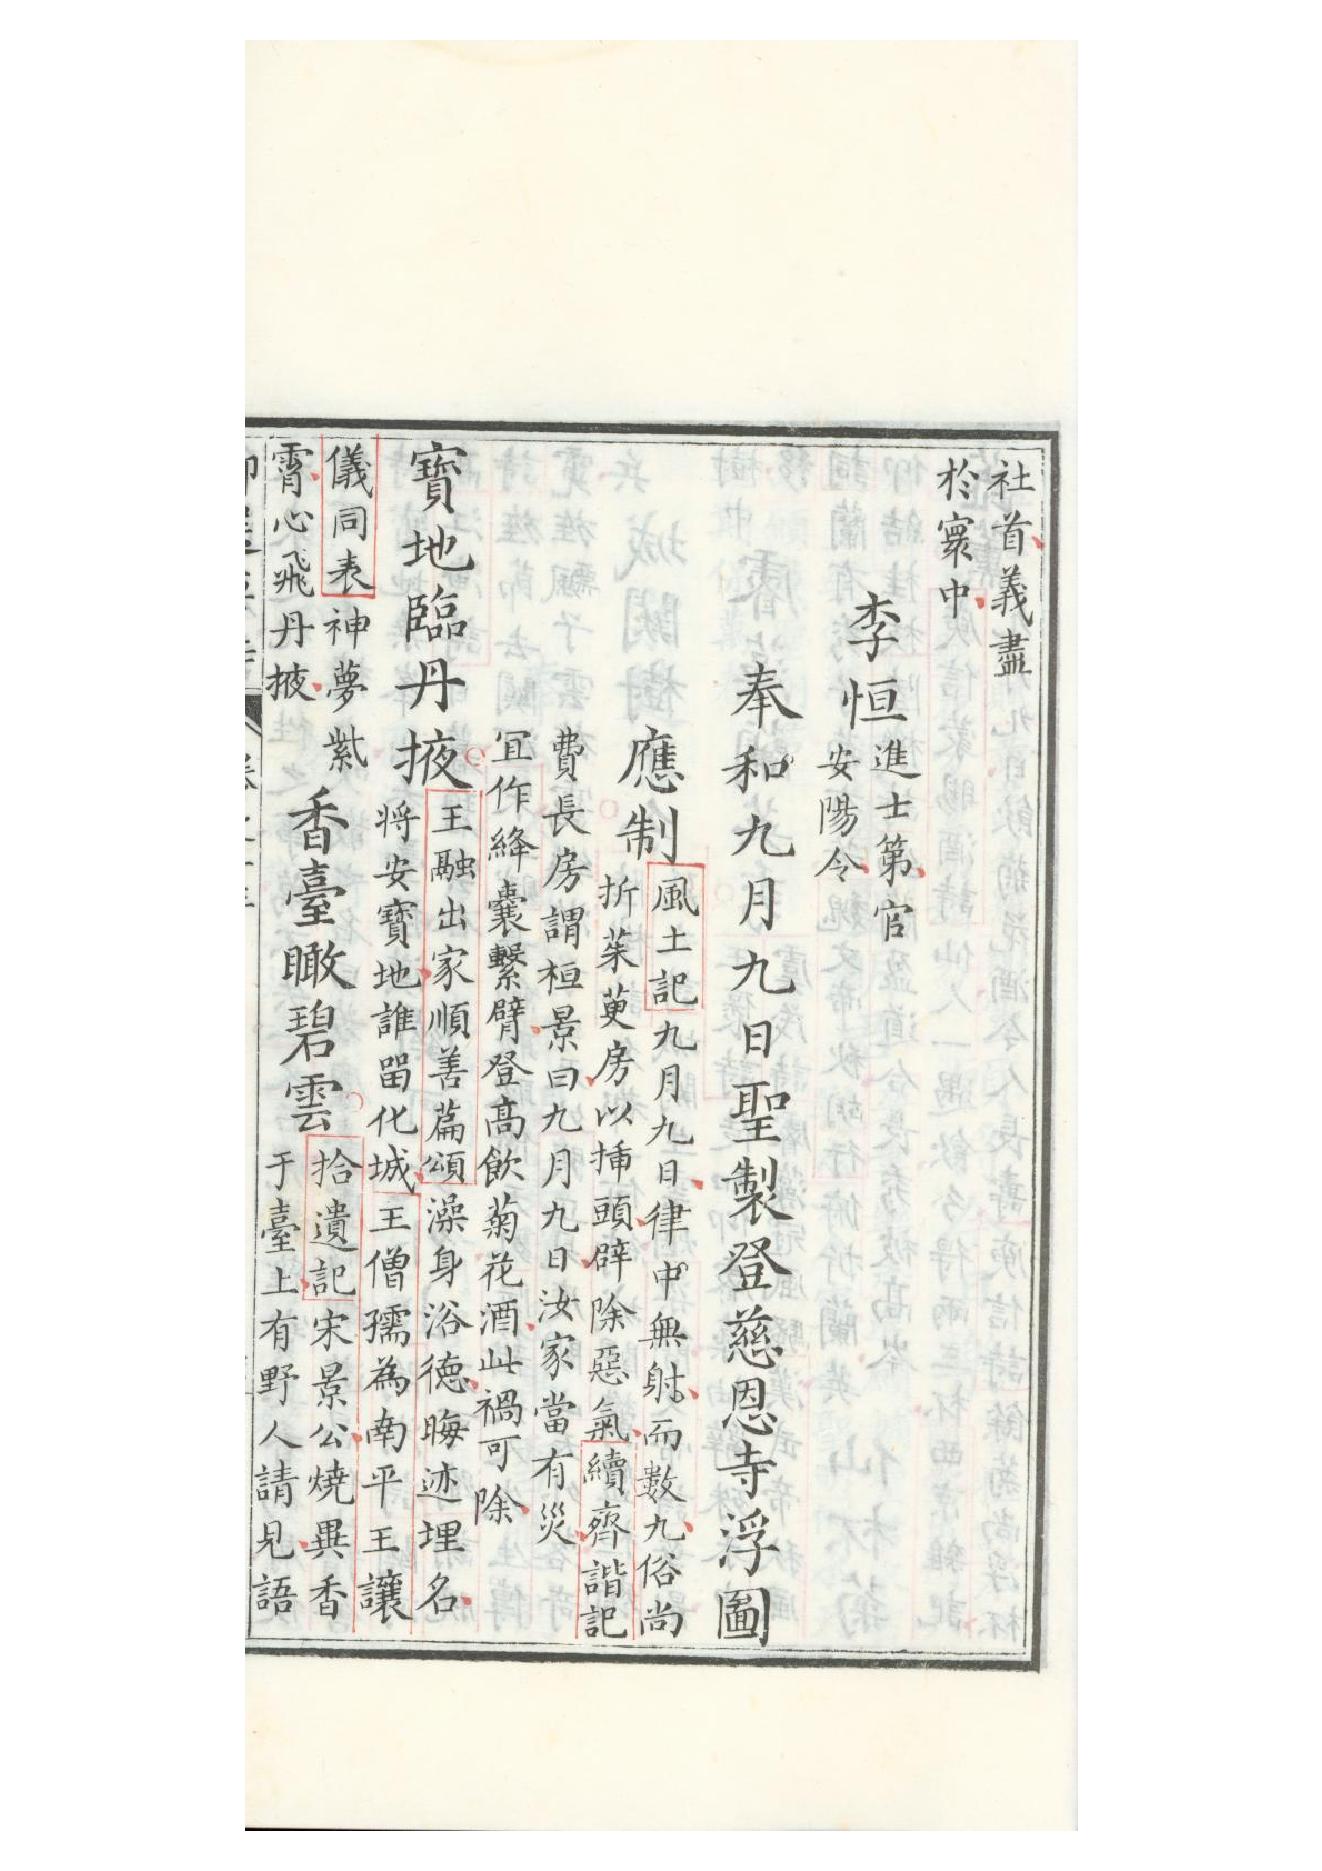 社首義盡
於寰中
李恒
進士第官
安陽令
奉和九月九日聖製登慈恩寺浮圖
應制
風土記九月九日律中無射而數九俗尚
折茱萸房以揷頭辟除惡氣續齊諧記
費長房謂桓景曰九月九日汝家當有災
冝作絳囊繫臂登高飲菊花酒此禍可除
寶地臨丹掖
王融出家順善篇頌澡身浴德晦迹埋名
将安寶地誰留化城王僧孺為南平王讓
儀同表神夢紫
霄心飛丹掖
香臺瞰碧雲
拾遺記宋景公燒異香
于臺上有野人請見語